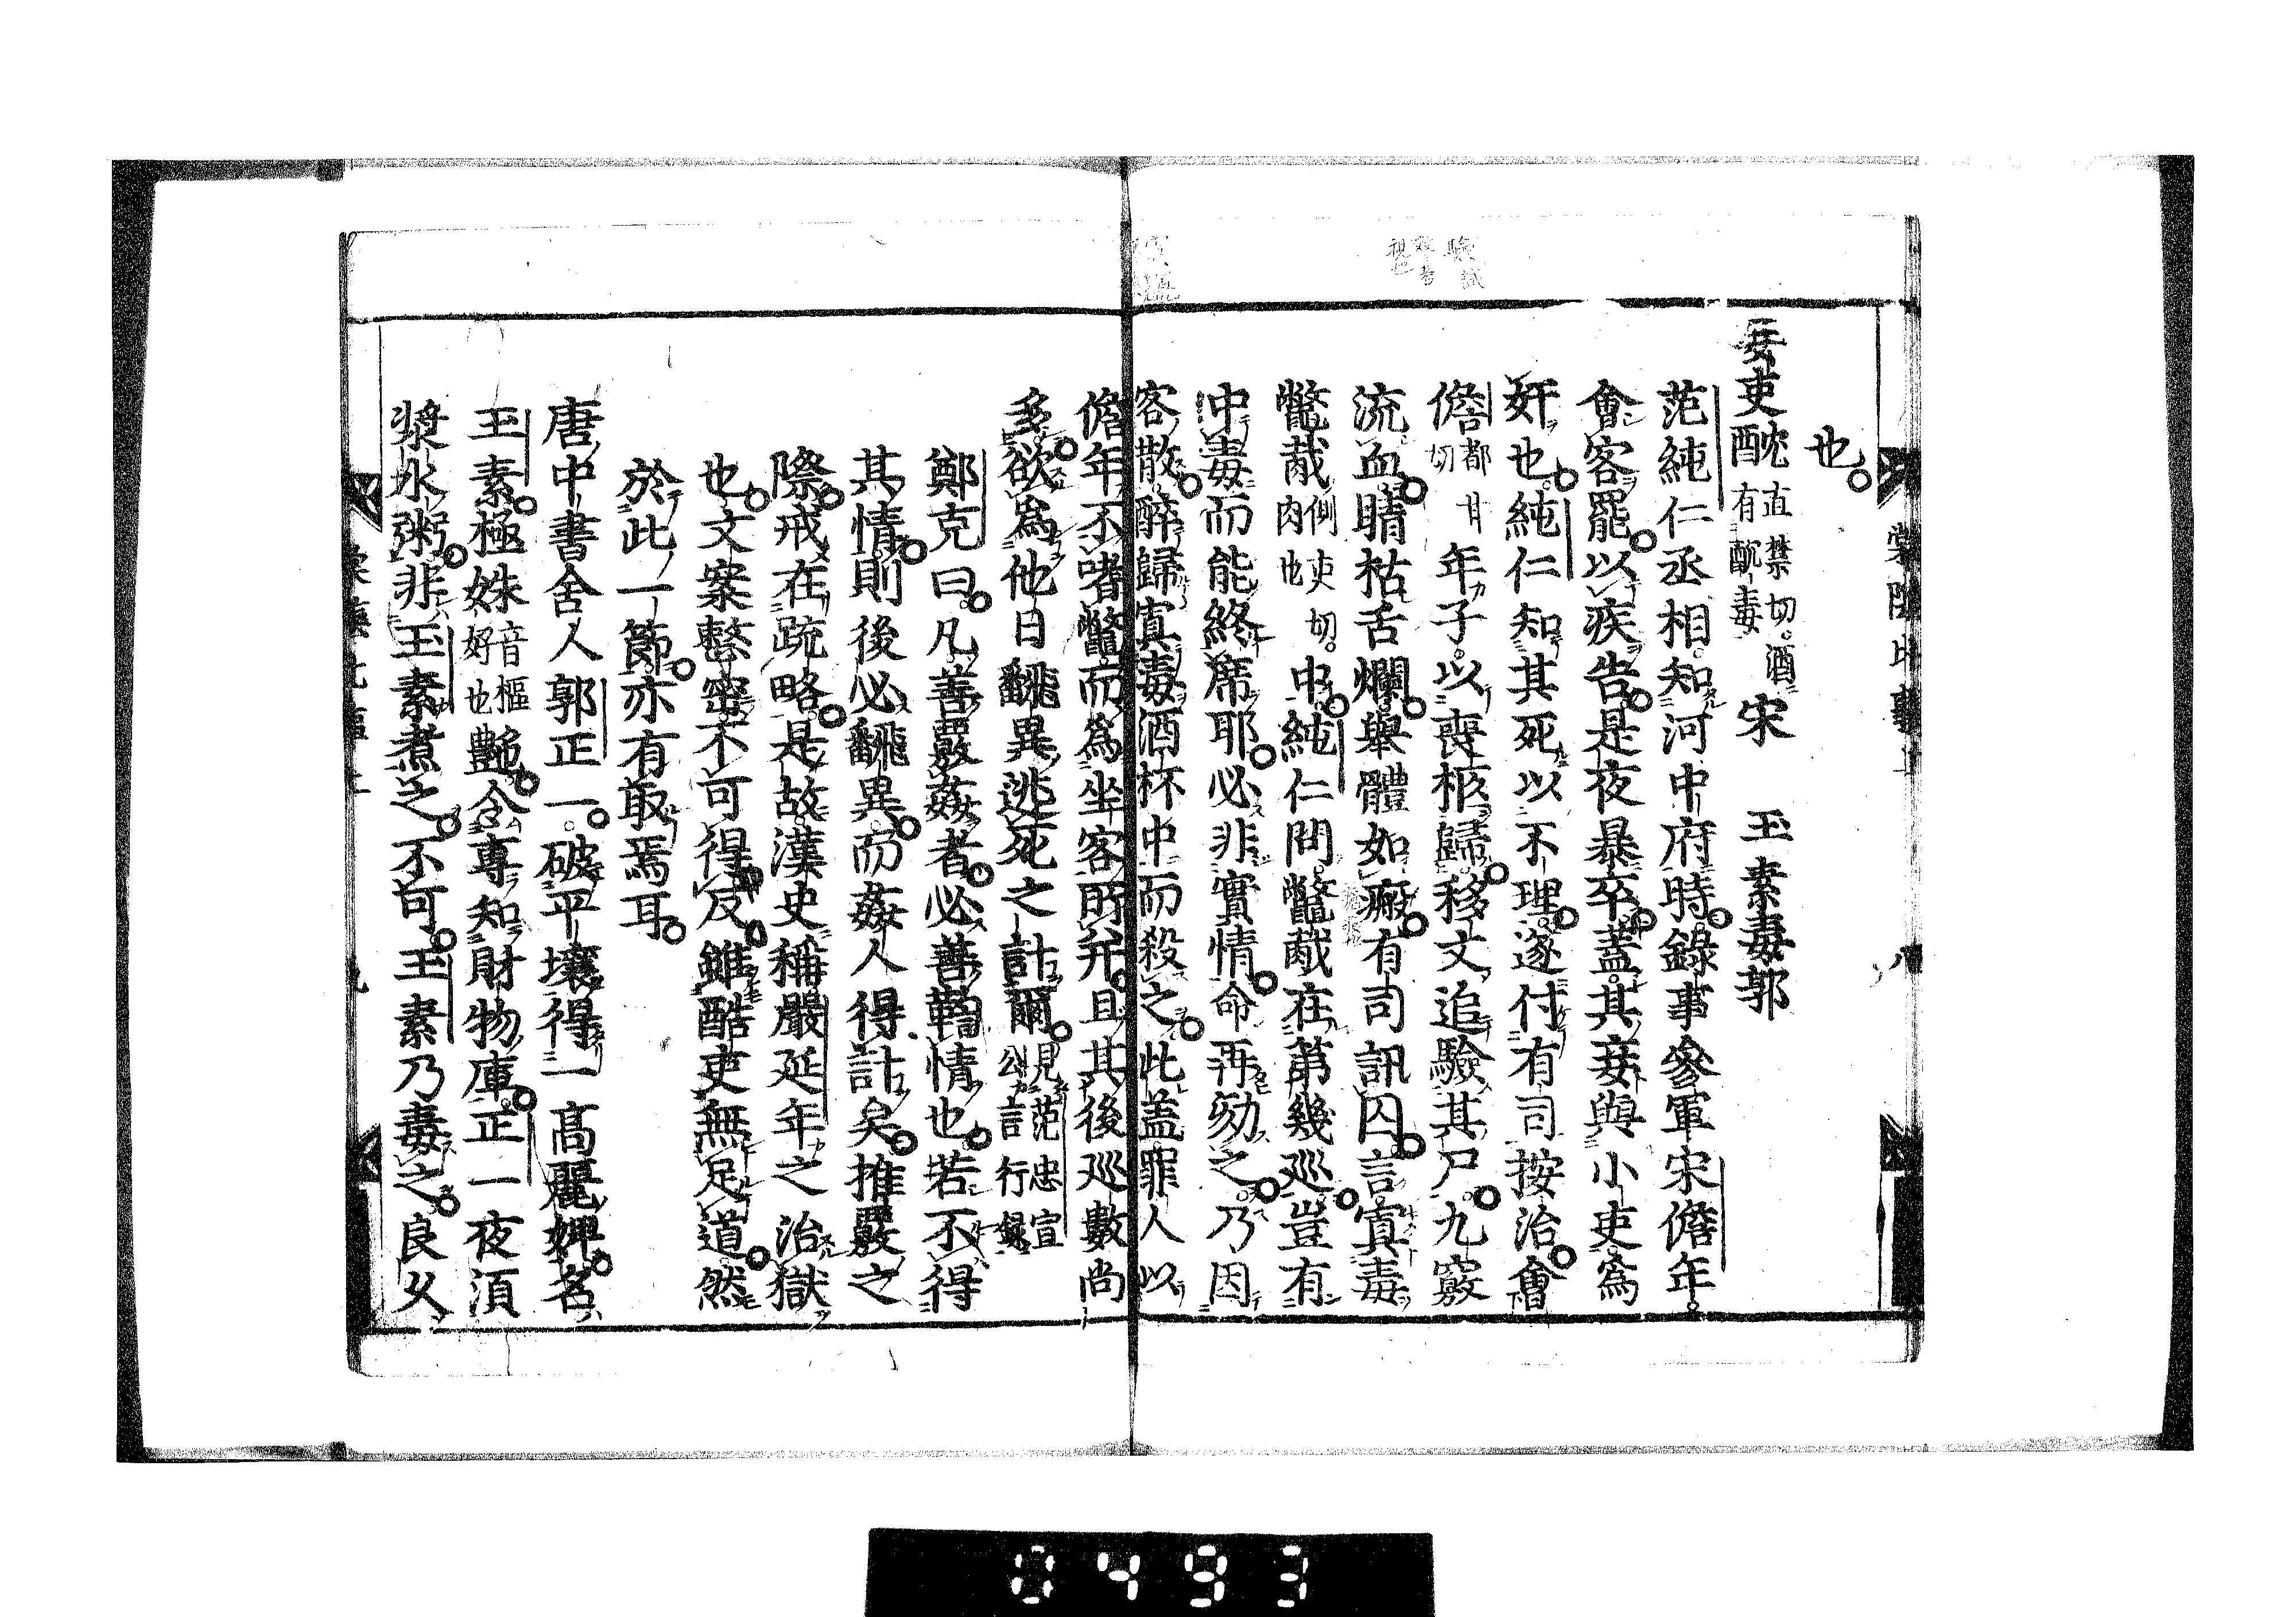 也
妾吏酖直禁切酒有酖毒宋　玉素毒郭
范純仁丞相知河中府時錄事參軍宋儋年
會客罷以疾告是夜暴卒蓋其妾與小吏爲
奸也純仁知其死以不理遂付有司按治會
儋都甘切年子以喪柩歸移文追驗其尸九竅
流血睛枯舌爛舉體如㾗有司訊囚言寘毒
鼈胾側吏切肉也中純仁問鼈胾在第幾巡豈有
中毒而能終席耶必非實情命再劾之乃因
客散醉歸寘毒酒杯中而殺之此盖罪人以
儋年不嗜鼈而爲坐客所并且其後巡數尚
多欲爲他日飜異逃死之計爾見范忠宣公言行錄
鄭克曰凡善覈姦者必善鞫情也若不得
其情則後必飜異而姦人得計矣推覈之
際戒在疏略是故漢史稱嚴延年之治獄
也文案整密不可得反雖酷吏無足道然
於此一節亦有取焉耳
唐中書舍人郭正一破平壤得一高麗婢名
玉素極姝音樞好也艶令專知財物庫正一夜須
漿水粥非玉素煮之不可玉素乃毒之良久
棠陰比事
八
0493